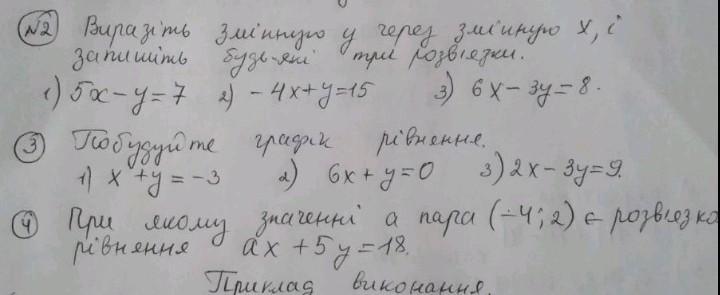 №2 Виразіть змінную у через змінную х, і
запишіть будь-які три розвязки.
1) 5x-y=7 2) -4x+y=15 3) 6x-3y=8.
3 Побудуйте графік рівнення.
1) x+y=-3 2) 6x+y=0 3) 2x-3y=9.
4 При якому значенні а пара (-4;2) є розвязко
рівнення ax+5y=18.
Приклад виконання.